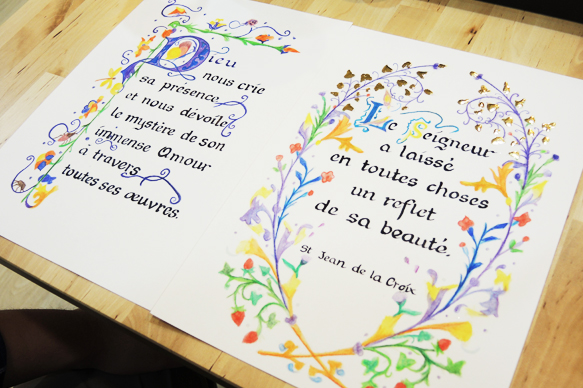 Dieu
nous crie
sa présence
et nous dévoile
le mystère de son
immense Amour
à travers
toutes ses œuvres.
Le Seigneur
a laissé
en toutes choses
un reflet
de sa beauté.
St Jean de la Croix